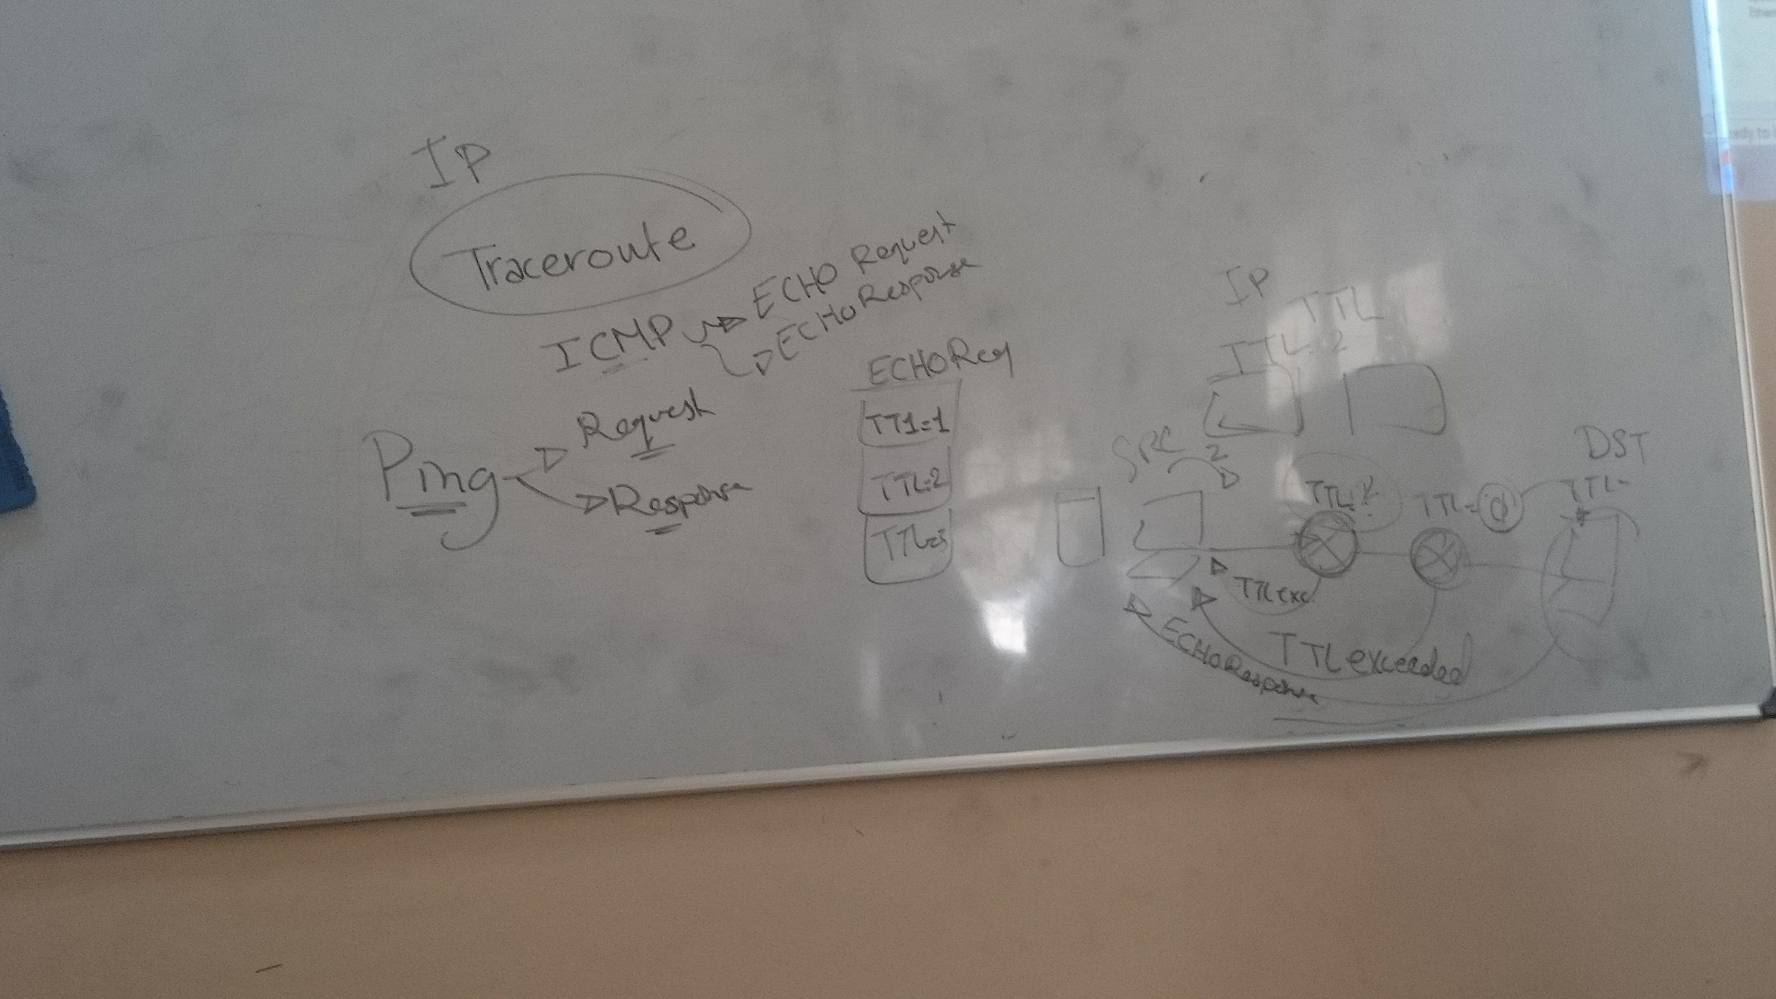 IP
Traceroute
ICMP
ECHO Request
ECHO Response
Ping
Request
Response
ECHO Req
TT1=1
TTL=2
TTL=3
IP
TTL
TTL 2
SRC
2
DST
TTL=
TTL=0
TTL-
TTL exc.
TTL exceeded
ECHO Response